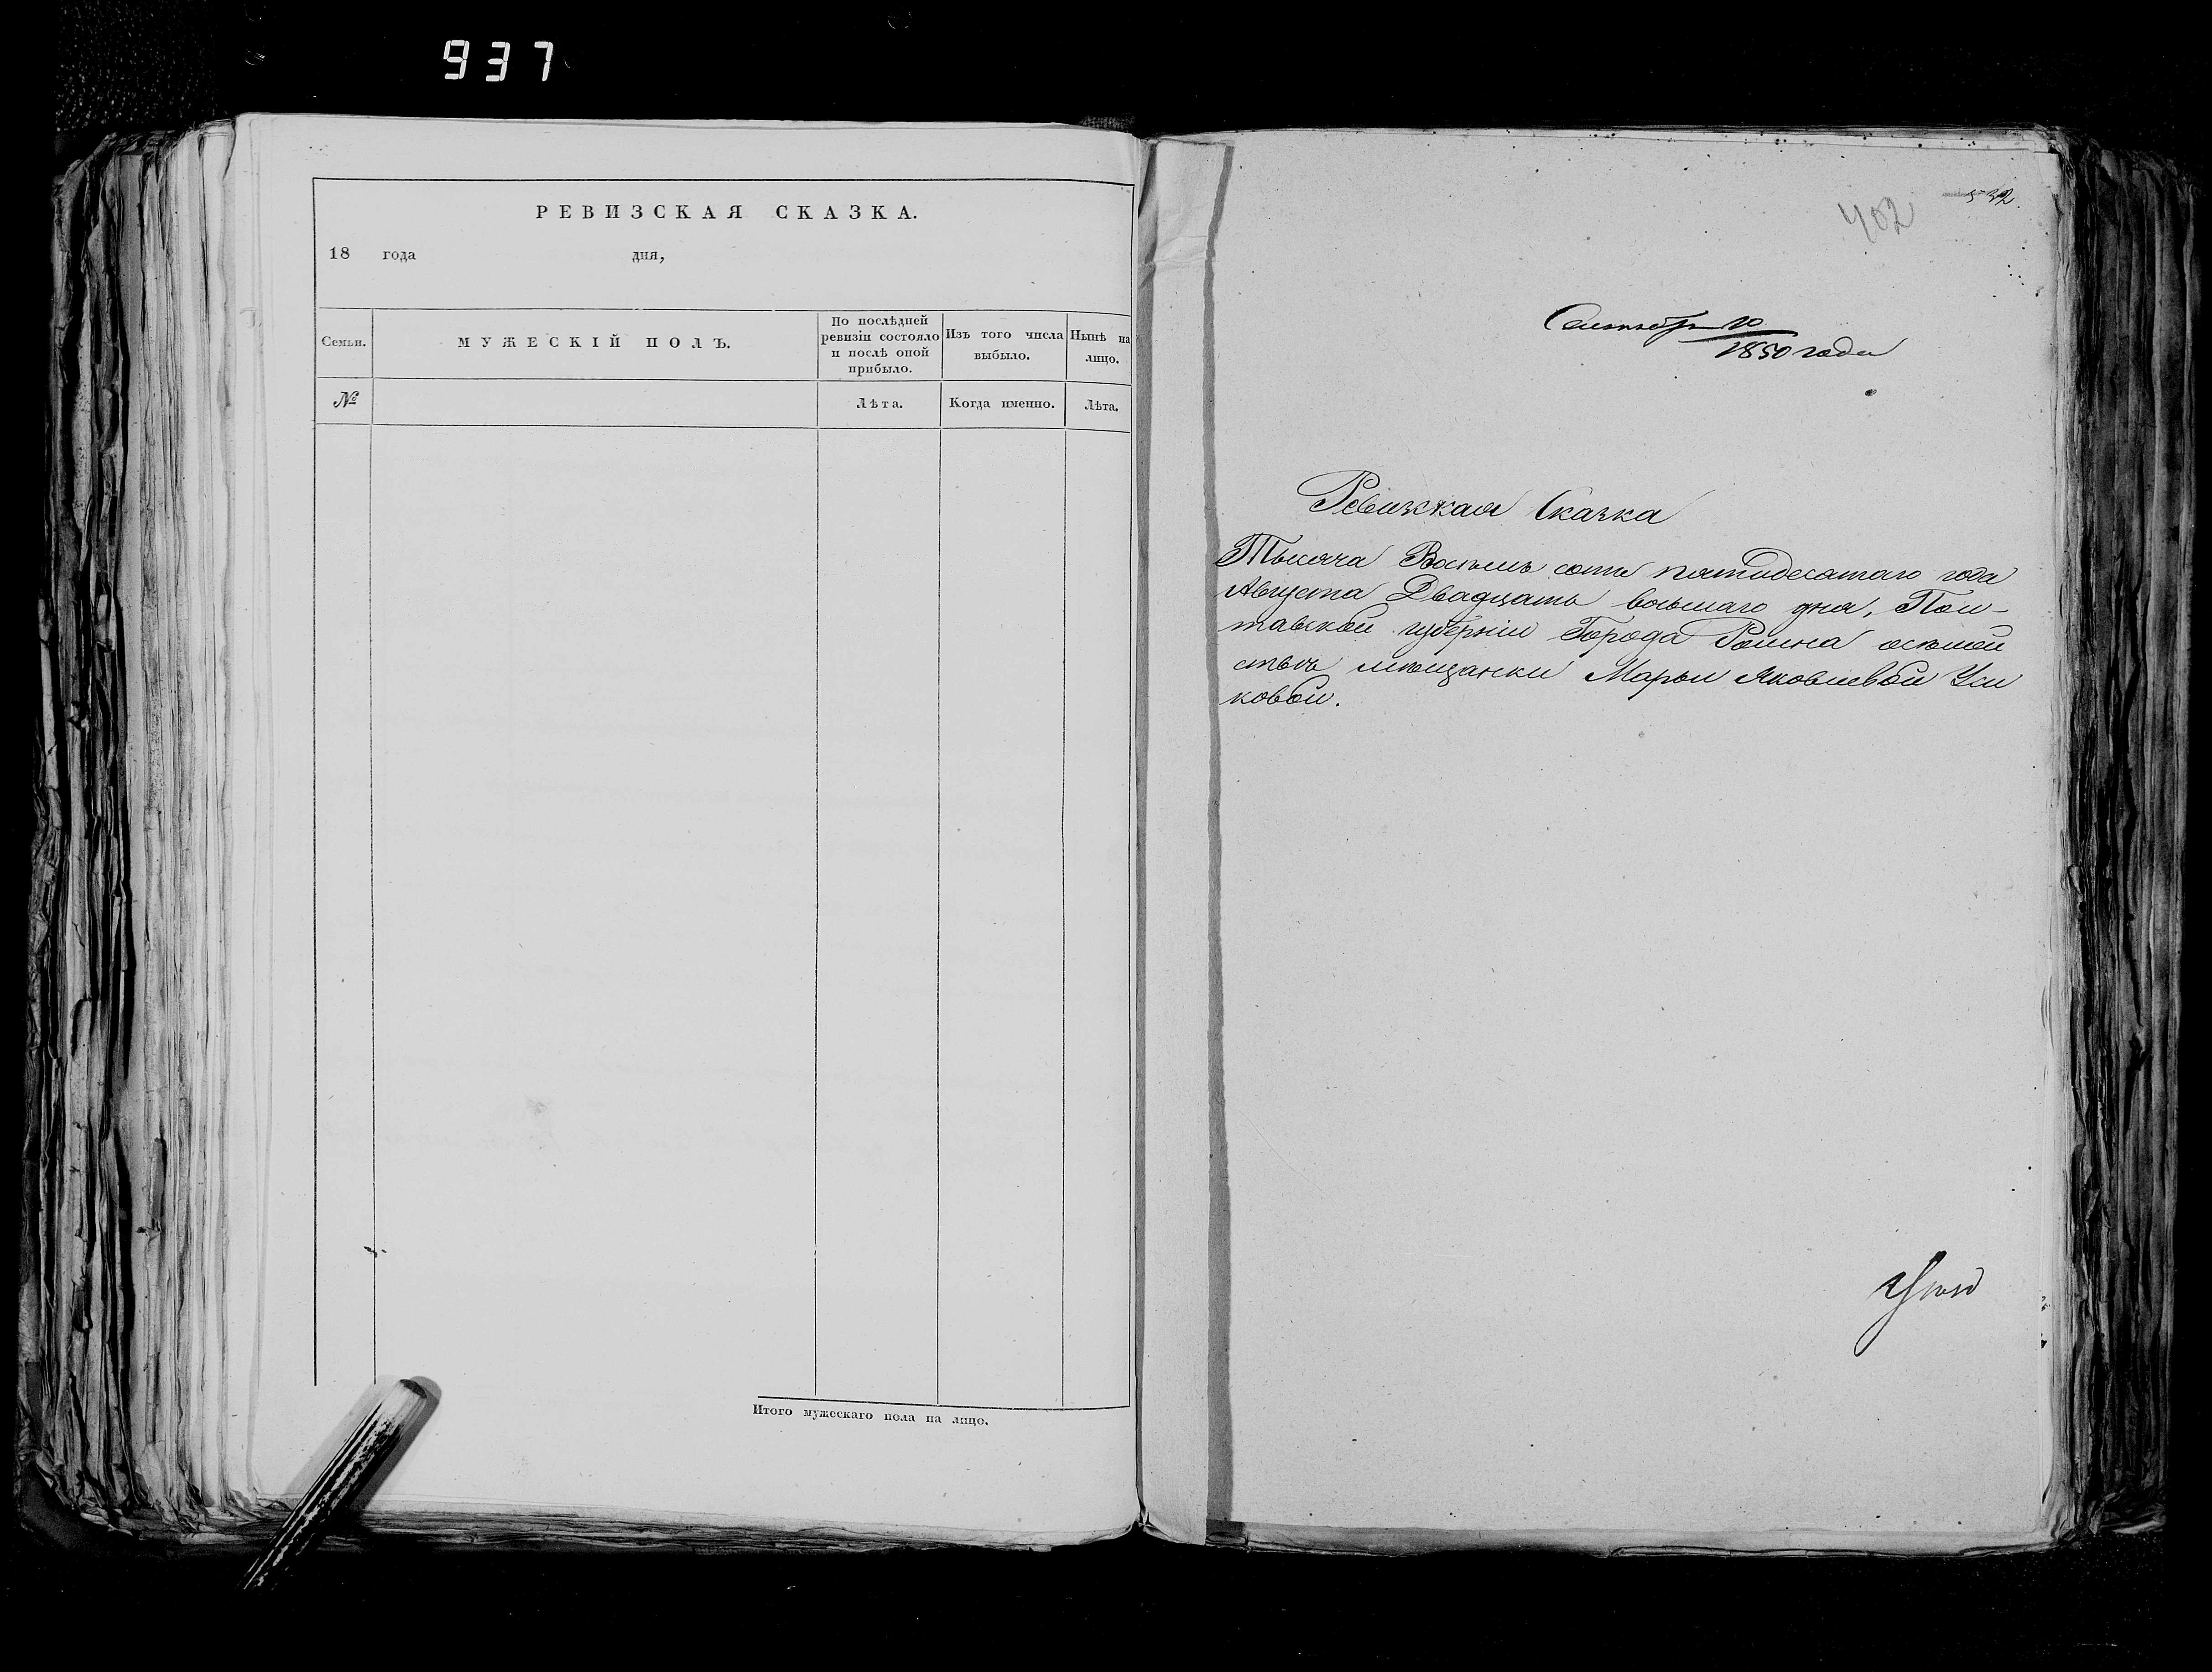 937
РЕВИЗСКАЯ СКАЗКА.
18 года дня,
Семьи.
МУЖЕСКІЙ ПОЛЪ.
По послѣдней
ревизіи состояло
и послѣ оной
прибыло.
Изъ того числа
выбыло.
Нынѣ на
лицо.
№
Лѣта.
Когда именно.
Лѣта.
Итого мужескаго пола на лицо.
532.
402
Сентября 10
1850 года
Ревизская Сказка
Тысяча Восемь сотъ пятидесятаго года
Августа Двадцать восьмаго дня, Пол-
тавской губерніи Города Ромна
мѣщанки Марьи Яковлевой Уси
ковой.